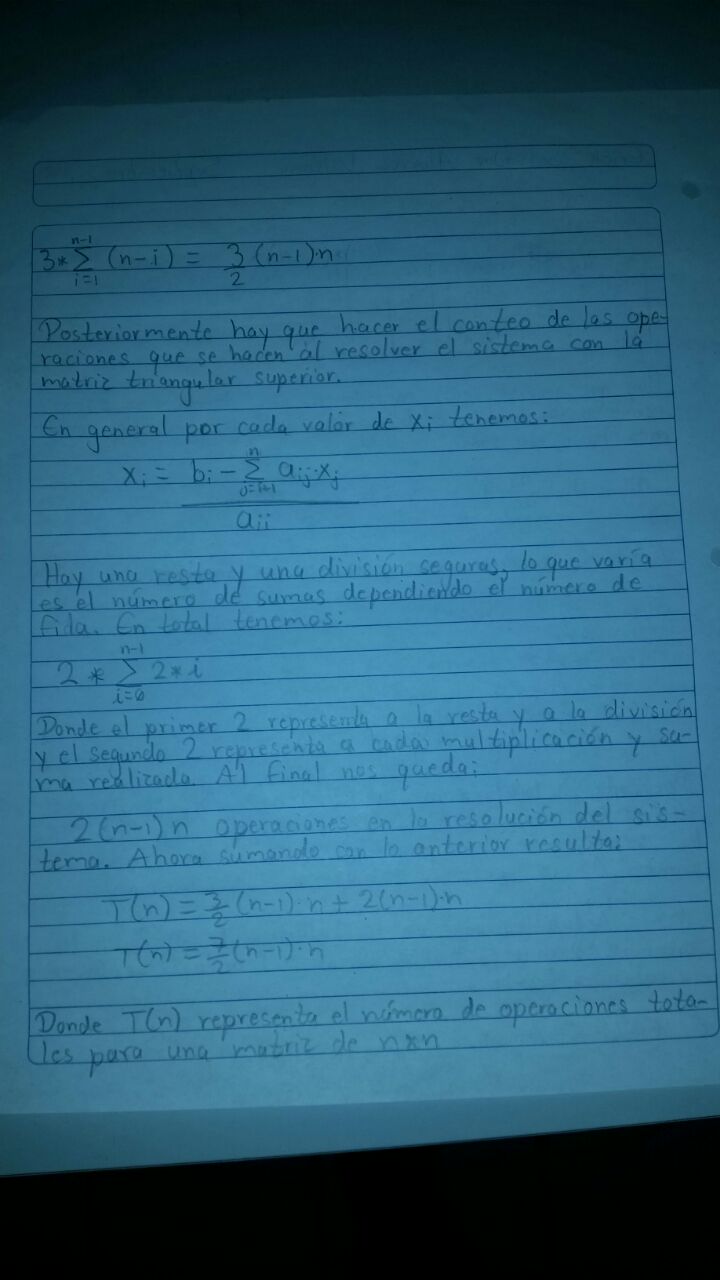 3*∑_{i=1}^{n-1} (n-i) = 3/2 (n-1)·n
Posteriormente hay que hacer el conteo de las ope-
raciones que se hacen al resolver el sistema con la
matriz triangular superior.
En general por cada valor de xi tenemos:
xi = (bi - ∑_{j=i+1}^{n} aij·xj) / aii
Hay una resta y una división seguras, lo que varía
es el número de sumas dependiendo el número de
fida. En total tenemos:
2 * ∑_{i=0}^{n-1} 2*i
Donde el primer 2 representa a la resta y a la división
y el segundo 2 representa a cada multiplicación y su-
ma realizada. Al final nos queda:
2(n-1)n operaciones en la resolución del sis-
tema. Ahora sumando con lo anterior resulta:
T(n) = 3/2 (n-1)·n + 2(n-1)·n
T(n) = 7/2 (n-1)·n
Donde T(n) representa el número de operaciones tota-
les para una matriz de nxn